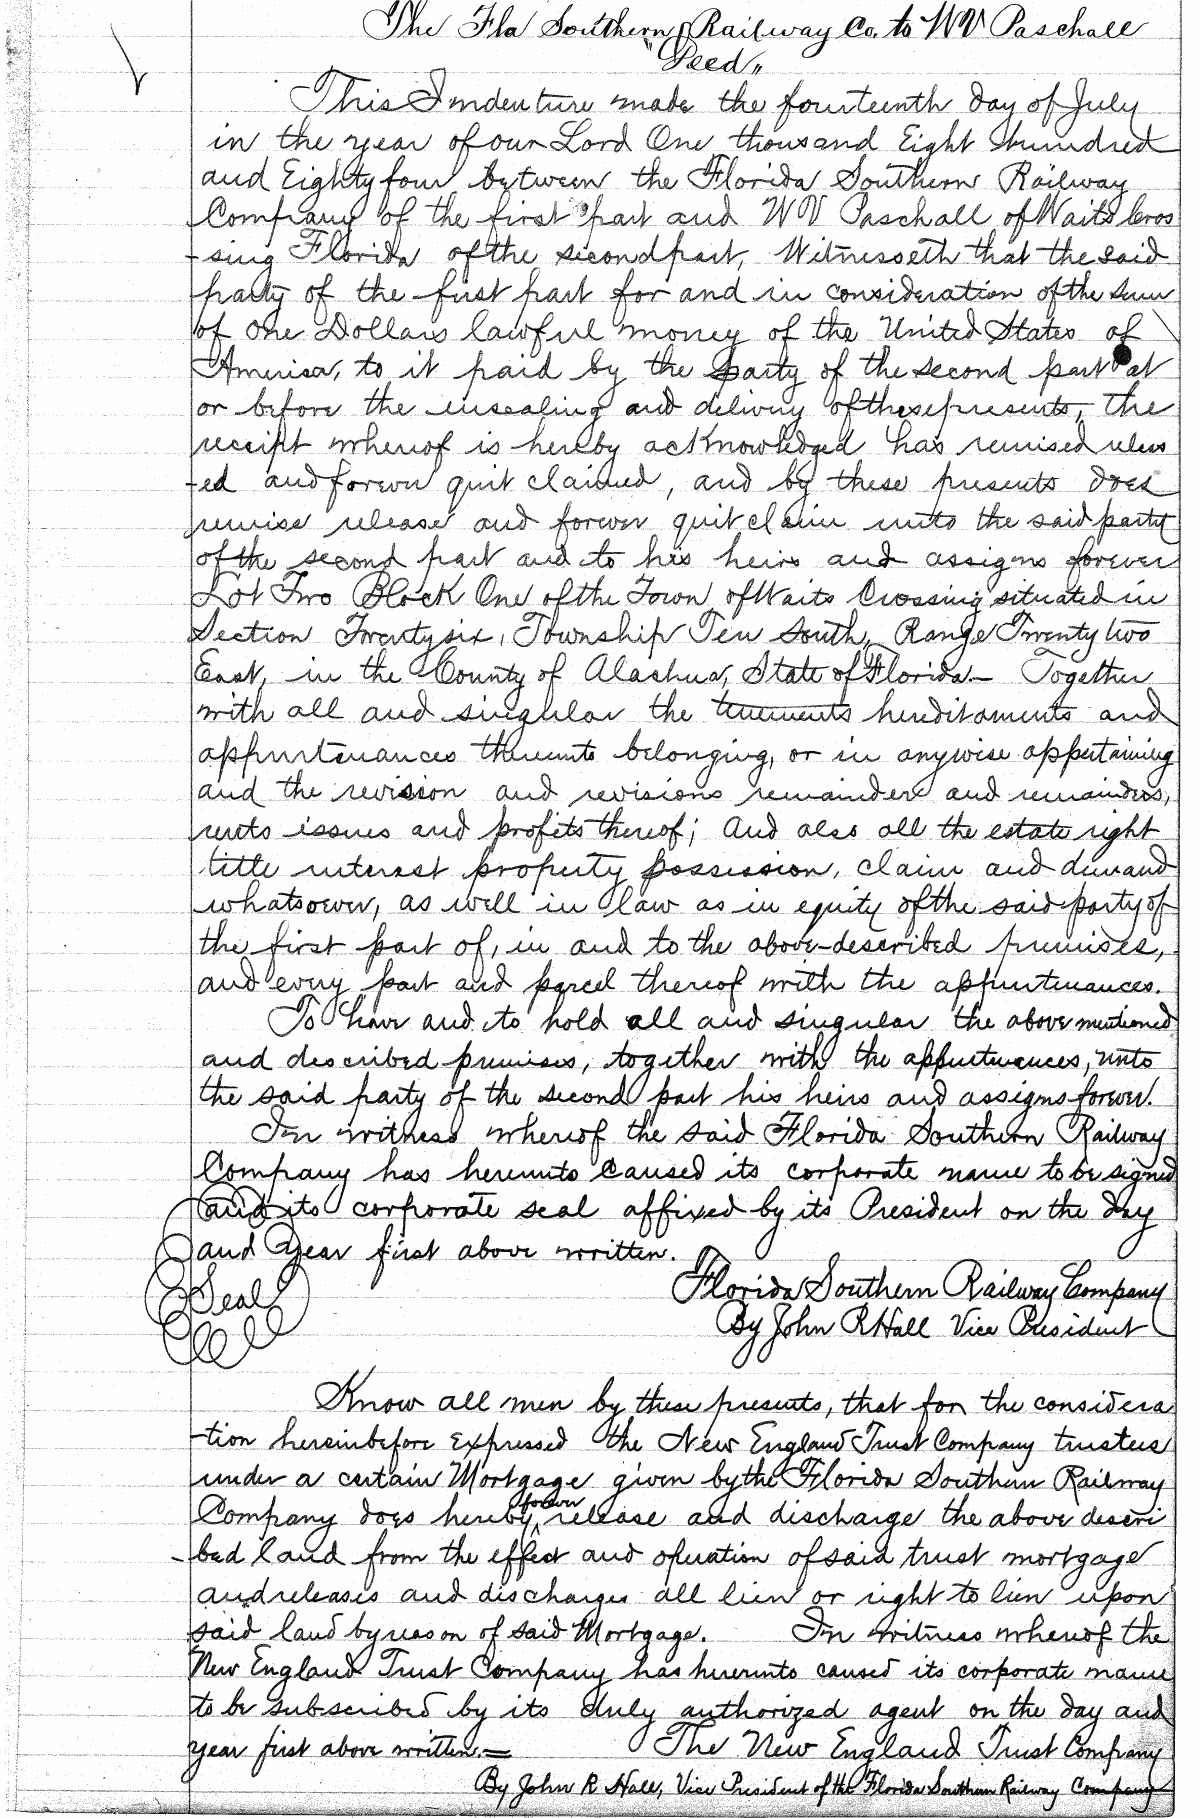 The Fla Southern Railway Co. to W V Paschall
"Deed"
This Indenture made the fourteenth day of July
in the year of our Lord One thousand Eight Hundred
and Eighty four between the Florida Southern Railway
Company of the first part and W V Paschall of Waits Cros
-sing Florida of the second part, Witnesseth that the said
party of the first part for and in consideration of the sum
of One Dollars lawful money of the United States of
America, to it paid by the party of the second part at
or before the ensealing and delivery of these presents, the
receipt whereof is hereby acknowledged has remised releas
-ed and forever quit claimed, and by these presents does
remise release and forever quit claim unto the said party
of the second part and to his heirs and assigns forever
Lot Two Block One of the Town of Waits Crossing situated in
Section Twenty six, Township Ten South, Range Twenty two
East, in the County of Alachua, State of Florida.— Together
with all and singular the tenements hereditaments and
appurtenances thereunto belonging, or in anywise appertaining
and the revision and revisions remainder and remainders,
rents issues and profits thereof; And also all the estate right
title interest property possession, claim and demand
whatsoever, as well in law as in equity of the said party of
the first part of, in and to the above-described premises,
and every part and parcel thereof with the appurtenances.
To have and to hold all and singular the above mentioned
and described premises, together with the appurtenances, unto
the said party of the second part his heirs and assigns forever.
In witness whereof the said Florida Southern Railway
Company has hereunto caused its corporate name to be signed
and its corporate seal affixed by its President on the day
and Year first above written.
Seal
Florida Southern Railway Company
By John R Hall Vice President
Know all men by these presents, that for the considera
-tion hereinbefore expressed the New England Trust Company trustees
under a certain Mortgage given by the Florida Southern Railway
Company does hereby forever release and discharge the above descri
-bed land from the effect and operation of said trust mortgage
and releases and discharges all lien or right to lien upon
said land by reason of said Mortgage. In witness whereof the
New England Trust Company has hereunto caused its corporate name
to be subscribed by its duly authorized agent on the day and
year first above written.—
The New England Trust Company
By John R Hall, Vice President of the Florida Southern Railway Company